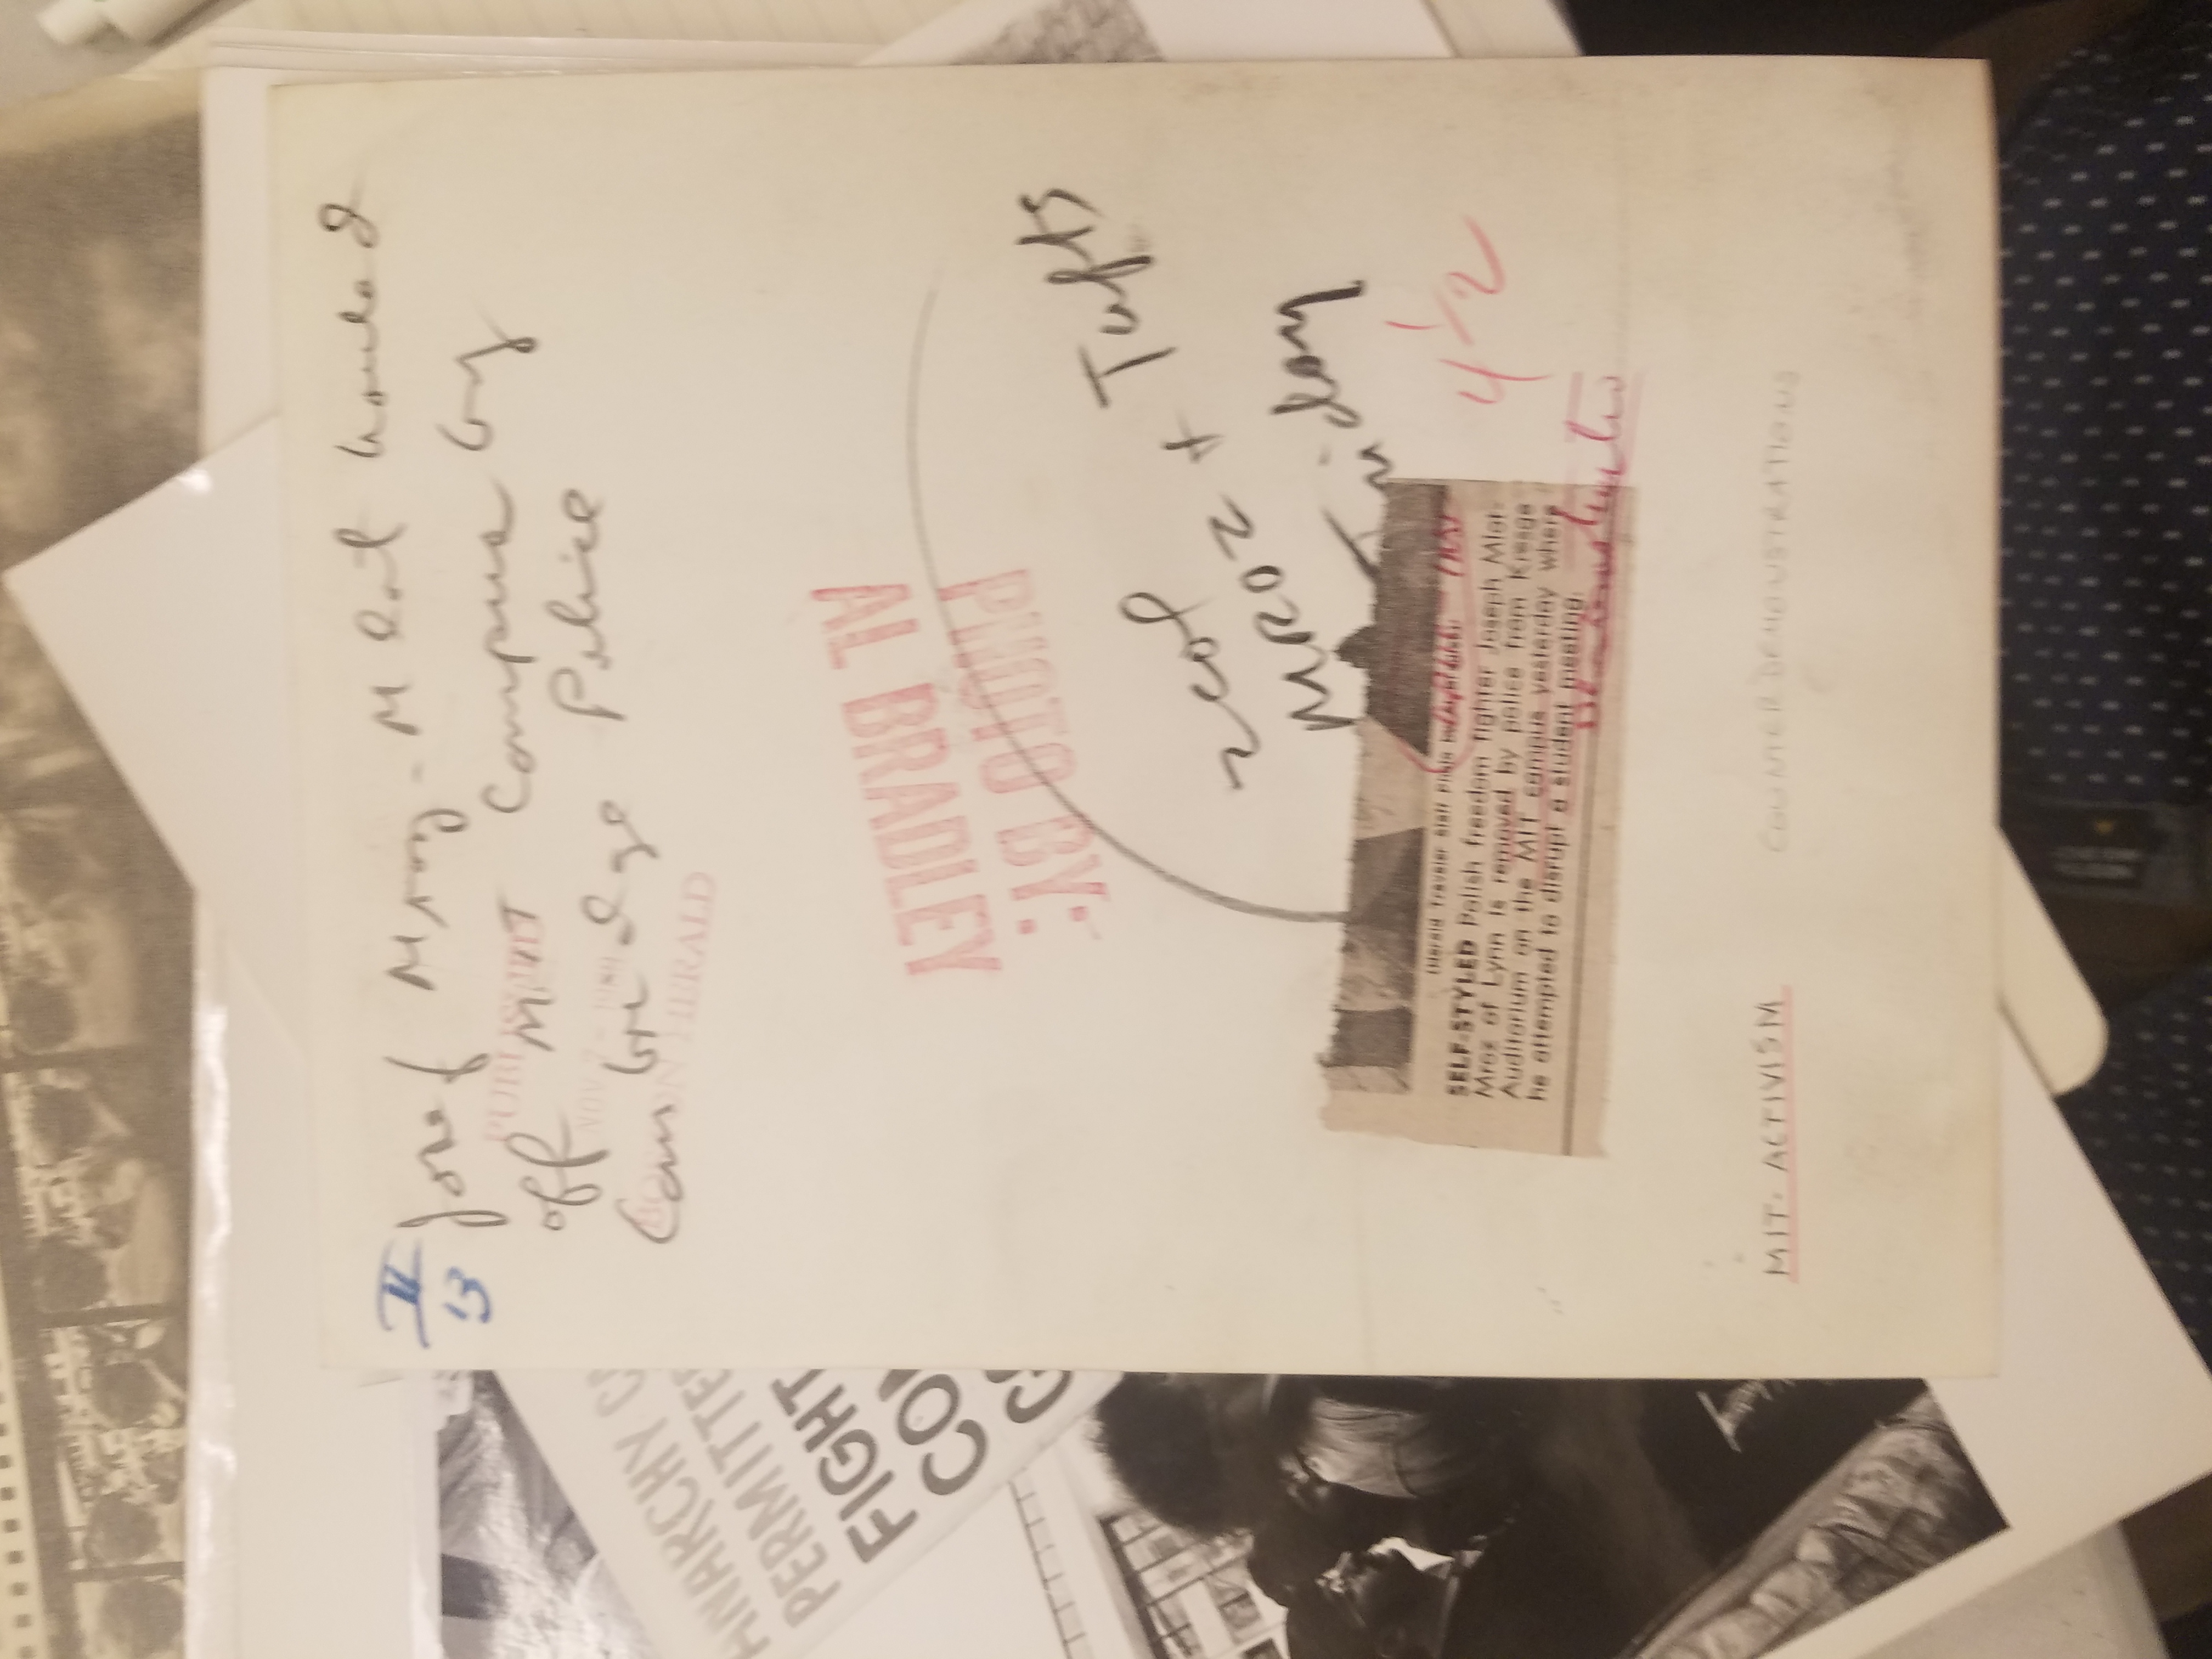 II
13
Josef Mroz-Mlot hauled
off MIT Campus by
Cambridge Police
PUBLISHED
NOV 7 - 1969
BOSTON HERALD
ANARCHY
PERMITTE
FIGHT
CO
G
PHOTO BY:
AL BRADLEY
2 col
MROZ + Tufts
Friday
4 1/2
(Herald Traveler Staff Photo
SELF-STYLED Polish freedom fighter Joseph Mlot-
Mroz of Lynn is removed by police from Kresge
Auditorium on the MIT campus yesterday where
he attempted to disrupt a student meeting.
MIT- ACTIVISM
COUNTERDEMONSTRATIONS